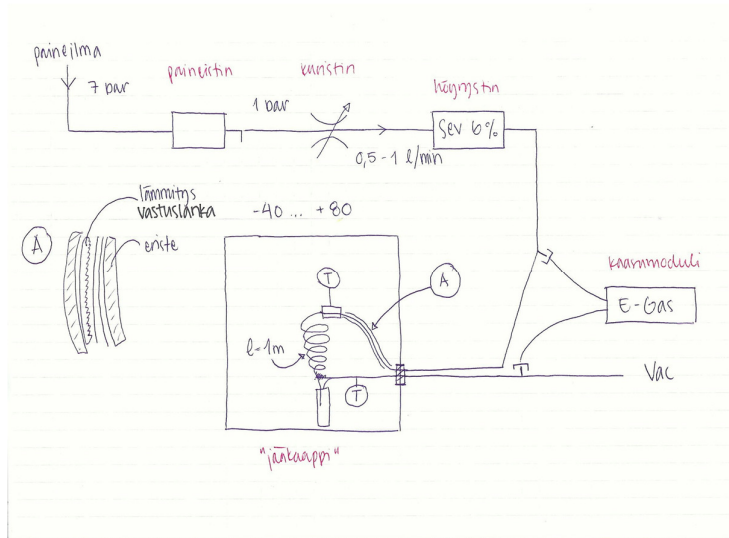 paineilma
7 bar
paineistin
1 bar
kuristin
0,5-1 l/min
höyrystin
Sev 6%
lämmitys
vastuslanka
A
eriste
-40 ... +80
T
A
l=1m
T
"jääkaappi"
kaasumoduli
E-Gas
Vac